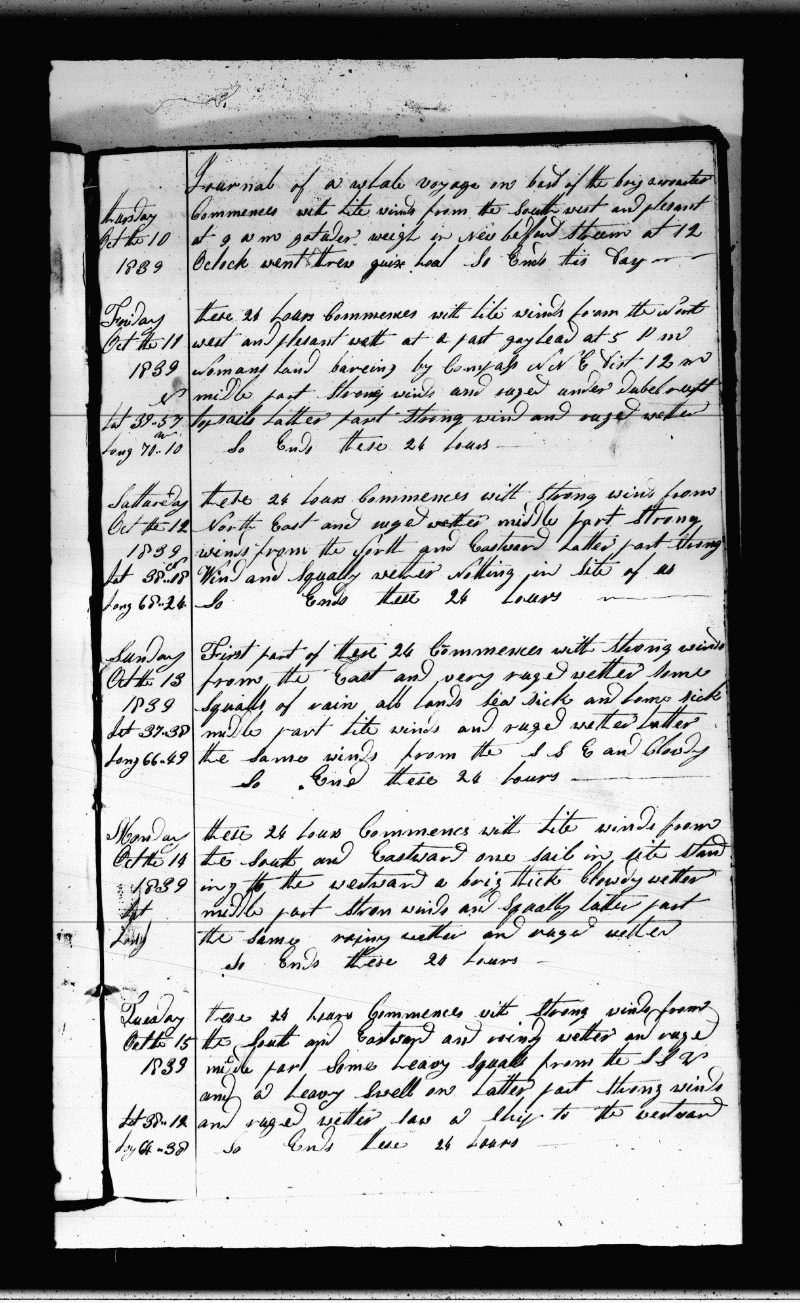 Journal of a whale voyage on bord of the brig
thursday Commences with lite winds from the South west and plesant
Oct the 10 at 9 a m got under weigh in New bedford Streem at 12
1839 Oclock went threw quixs hoal So Ends this Day
Friday these 24 hours Commences with lite winds from the North
Oct the 11 west and plesant weth at 2 past gay head at 5 P m
1839 nomans land bareing by Compass N N E Dist 12 m
N midle part Strong winds and ruged under dubel reeft
Lat 39-57 topsails Latter part Strong wind and ruged wether
w
Long 70-10 So Ends these 24 hours
Satturday these 24 hours Commences with Strong winds from
Oct the 12 North East and ruged wether midle part Strong
1839 winds from the North and Eastward Latter part Strong
Lat 38-18 Wind and Squally wether Nothing in Site of us
Long 68-24 So Ends these 24 hours
Sunday First part of these 24 Commences with Strong winds
Oct the 13 from the East and very ruged wether Some
1839 Squalls of rain all hands Sea Sick and home sick
Lat 37-38 midle part lite winds and ruged wether Latter
Long 66-49 the same winds from the S S E and Clowdy
So End these 24 hours
Monday these 24 hours Commencs with Lite winds from
Oct the 14 the South and Eastward one sail in site stand
1839 ing to the westward a brig thick Clowdy wetter
Lat midle part Stron winds and Squally latter part
Long the same rainy wether and ruged wether
So Ends these 24 hours
Tuesday these 24 hours Commences with Strong winds from
Oct the 15 the South and Eastward and raing wether an ruged
1839 midle part Some heavy Squalls from the S S W
and a heavy Swell on Latter part Strong winds
Lat 38-12 and ruged wether saw a Ship to the westward
Log 64-38 So Ends these 24 hours